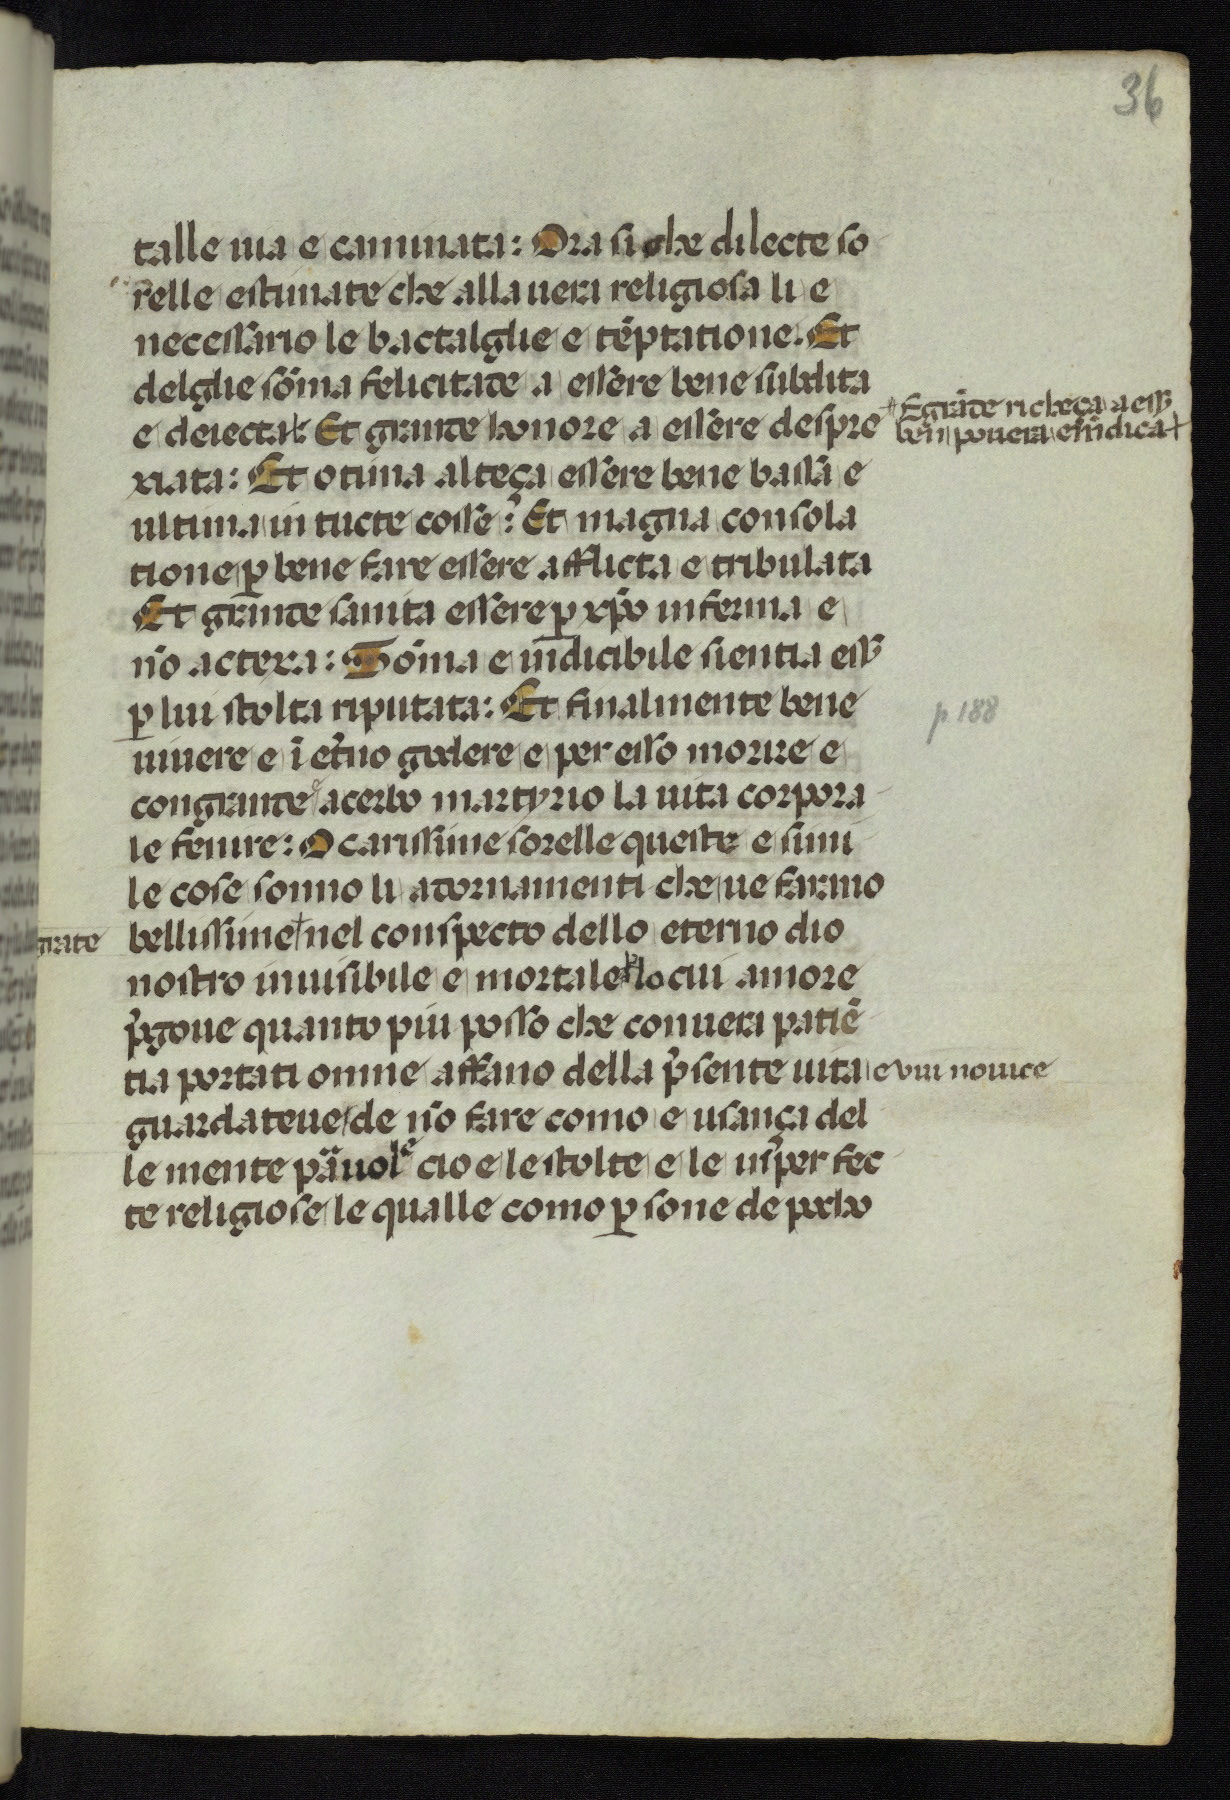 36
talle uia e caminata: Ora si che dilecte so
relle estimate che alla uera religiosa li e
necessario le bactalglie e tēptatione. Et
delglie sōma felicitate a essere bene subdita
e deiecta+: Et grande honore a essere despre
+ E grāde richeça a ess̄
ben pouera e mēdica+
xiata: Et otima alteça essere bene bassa e
ultima in tucte cosse: Et magna consola
tione ꝑ bene fare essere afflicta e tribulata
Et grande sanita essere ꝑ xp̄o inferma e
nō actexa: Sōma e indicibile sientia ess̄
ꝑ lui stolta riputata: Et finalmente bene
p 188
uiuere e ī et̄no godere e per esso morire e
con grande acerbo martyrio la uita corpora
le fenire: O carissime sorelle queste e simi
le cose sonno li adornamenti che ue farano
bellissime+ nel conspecto dello eterno dio
grate
nostro inuisibile e mortale ꝑ lo cui amore
p̄goue quanto piu posso che con uera patiē
tia portati omne affano della p̄sente uita e vui nouice
guardateue de nō fare como e usança del
le mente pauole cio e le stolte e le inperfec
te religiose le qualle como ꝑsone de pocho